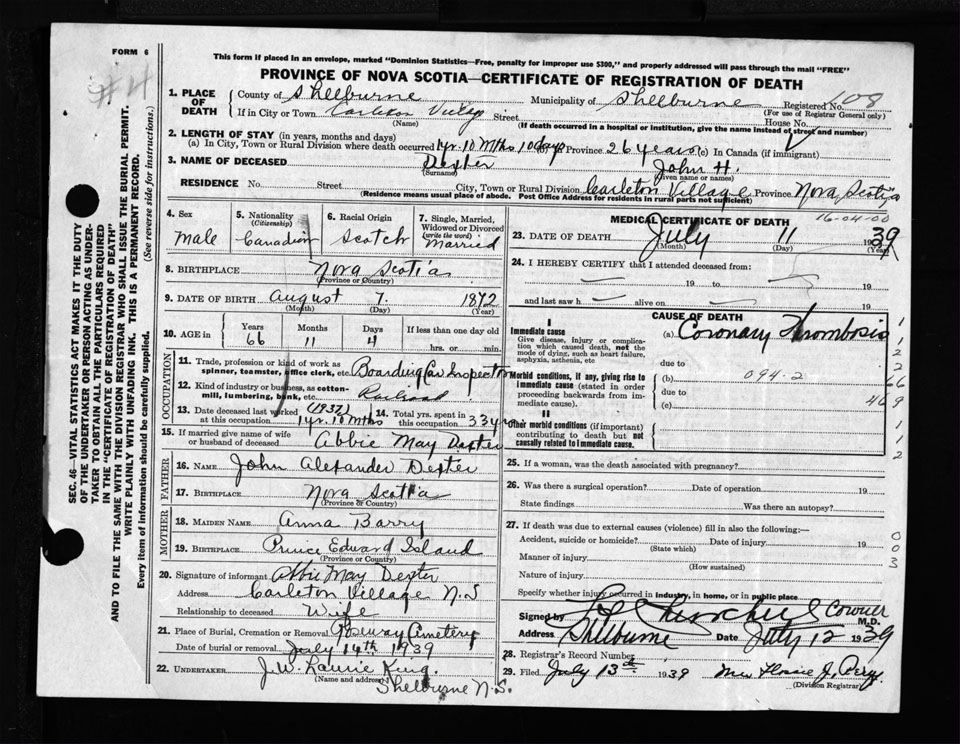 FORM 6
#4
This form if placed in an envelope, marked "Dominion Statistics—Free, penalty for improper use $300," and properly addressed will pass through the mail "FREE"
PROVINCE OF NOVA SCOTIA—CERTIFICATE OF REGISTRATION OF DEATH
1. PLACE OF DEATH
County of Shelburne Municipality of Shelburne Registered No. 108
(For use of Registrar General only)
If in City or Town Carleton Village Street House No.
(Name) (If death occurred in a hospital or institution, give the name instead of street and number)
2. LENGTH OF STAY (in years, months and days)
(a) In City, Town or Rural Division where death occurred 1 yr. 10 Mths 10 days (b) Province 26 years (c) In Canada (if immigrant)
3. NAME OF DECEASED Dexter John H.
(Surname) (Given name or names)
RESIDENCE No. Street City, Town or Rural Division Carleton Village Province Nova Scotia
(Residence means usual place of abode. Post Office Address for residents in rural parts not sufficient)
4. Sex
Male
5. Nationality
(Citizenship)
Canadian
6. Racial Origin
Scotch
7. Single, Married, Widowed or Divorced
(write the word)
Married
8. BIRTHPLACE Nova Scotia
(Province or Country)
9. DATE OF BIRTH August 7 1872
(Month) (Day) (Year)
10. AGE in Years Months Days If less than one day old
66 11 4 hrs. or min.
OCCUPATION
11. Trade, profession or kind of work as spinner, teamster, office clerk, etc. Boarding Car Inspector
12. Kind of industry or business, as cotton-mill, lumbering, bank, etc. Railroad
13. Date deceased last worked at this occupation (1937) 1 yr. 10 Mths
14. Total yrs. spent in this occupation 33 yrs
15. If married give name of wife or husband of deceased Abbie May Dexter
FATHER
16. NAME John Alexander Dexter
17. BIRTHPLACE Nova Scotia
(Province or Country)
MOTHER
18. MAIDEN NAME Anna Barry
19. BIRTHPLACE Prince Edward Island
(Province or Country)
20. Signature of informant Abbie May Dexter
Address Carleton Village N.S
Relationship to deceased Wife
21. Place of Burial, Cremation or Removal Roseway Cemetery
Date of burial or removal July 14th 1939
22. UNDERTAKER J.W. Laurie King.
(Name and address) Shelburne N.S.
MEDICAL CERTIFICATE OF DEATH
16-04-00
23. DATE OF DEATH July 11 1939
(Month) (Day) (Year)
24. I HEREBY CERTIFY that I attended deceased from:
19 to 19
and last saw h alive on 19
CAUSE OF DEATH
I
Immediate cause
Give disease, injury or complication which caused death, not the mode of dying, such as heart failure, asphyxia, asthenia, etc
(a) Coronary Thrombosis
due to
Morbid conditions, if any, giving rise to immediate cause (stated in order proceeding backwards from immediate cause).
(b) 094-2
due to
(c)
II
Other morbid conditions (if important) contributing to death but not causally related to immediate cause.
1
1
2
2
66
469
1
1
2
25. If a woman, was the death associated with pregnancy?
26. Was there a surgical operation? Date of operation 19
State findings Was there an autopsy?
27. If death was due to external causes (violence) fill in also the following:—
Accident, suicide or homicide? Date of injury 19
(State which)
Manner of injury
(How sustained)
Nature of injury
0
0
3
Specify whether injury occurred in industry, in home, or in public place
Signed by Churchill Coroner M.D.
Address Shelburne Date July 12 1939
28. Registrar's Record Number
29. Filed July 13th 1939 Mrs Florie J. Perry.
(Division Registrar)
SEC. 46—VITAL STATISTICS ACT MAKES IT THE DUTY
OF THE UNDERTAKER OR PERSON ACTING AS UNDER-
TAKER TO OBTAIN ALL THE PARTICULARS REQUIRED
IN THE "CERTIFICATE OF REGISTRATION OF DEATH"
AND TO FILE THE SAME WITH THE DIVISION REGISTRAR WHO SHALL ISSUE THE BURIAL PERMIT.
WRITE PLAINLY WITH UNFADING INK. THIS IS A PERMANENT RECORD.
Every item of information should be carefully supplied. (See reverse side for instructions.)